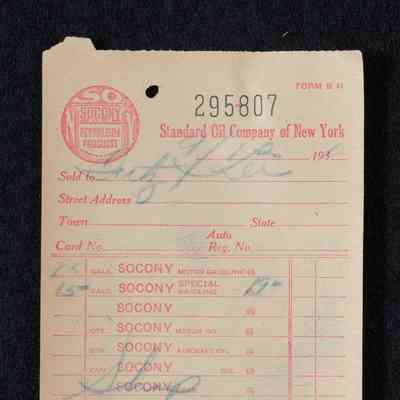 FORM B 41
295807
SOCONY
PETROLEUM
PRODUCTS
Standard Oil Company of New York
193
Sold to
Street Address
Town State
Auto
Card No. Reg. No.
GALS. SOCONY MOTOR GASOLINE @
15 GALS. SOCONY SPECIAL GASOLINE 19
SOCONY @
QTS. SOCONY MOTOR OIL @
QTS. SOCONY AIRCRAFT OIL @
SOCONY OIL @
SOCONY @